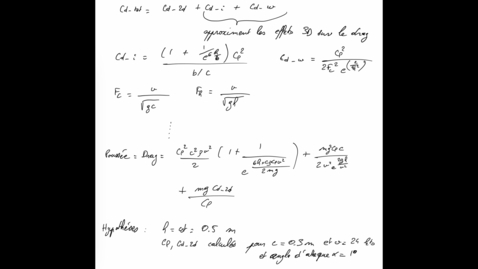 Cd_tot = Cd_2d + Cd_i + Cd_w
approximent les effets 3D sur le drag
Cd_i = (1 + 1/e^(h/b)) Cl² / (b/c)   Cd_w = Cl² / (2F_c² e^(2/F_h²))
F_c = v/√gc   F_h = v/√gh
⋮
Poussée = Drag = Cl² c² ρv²/2 (1 + 1/e) + mgClc/2v²e
+ mg Cd_2d / Cl
Hypothèses : h = ct = 0.5 m
Cl, Cd_2d calculés pour c = 0.3 m et v = 24
et angle d'attaque α = 1°